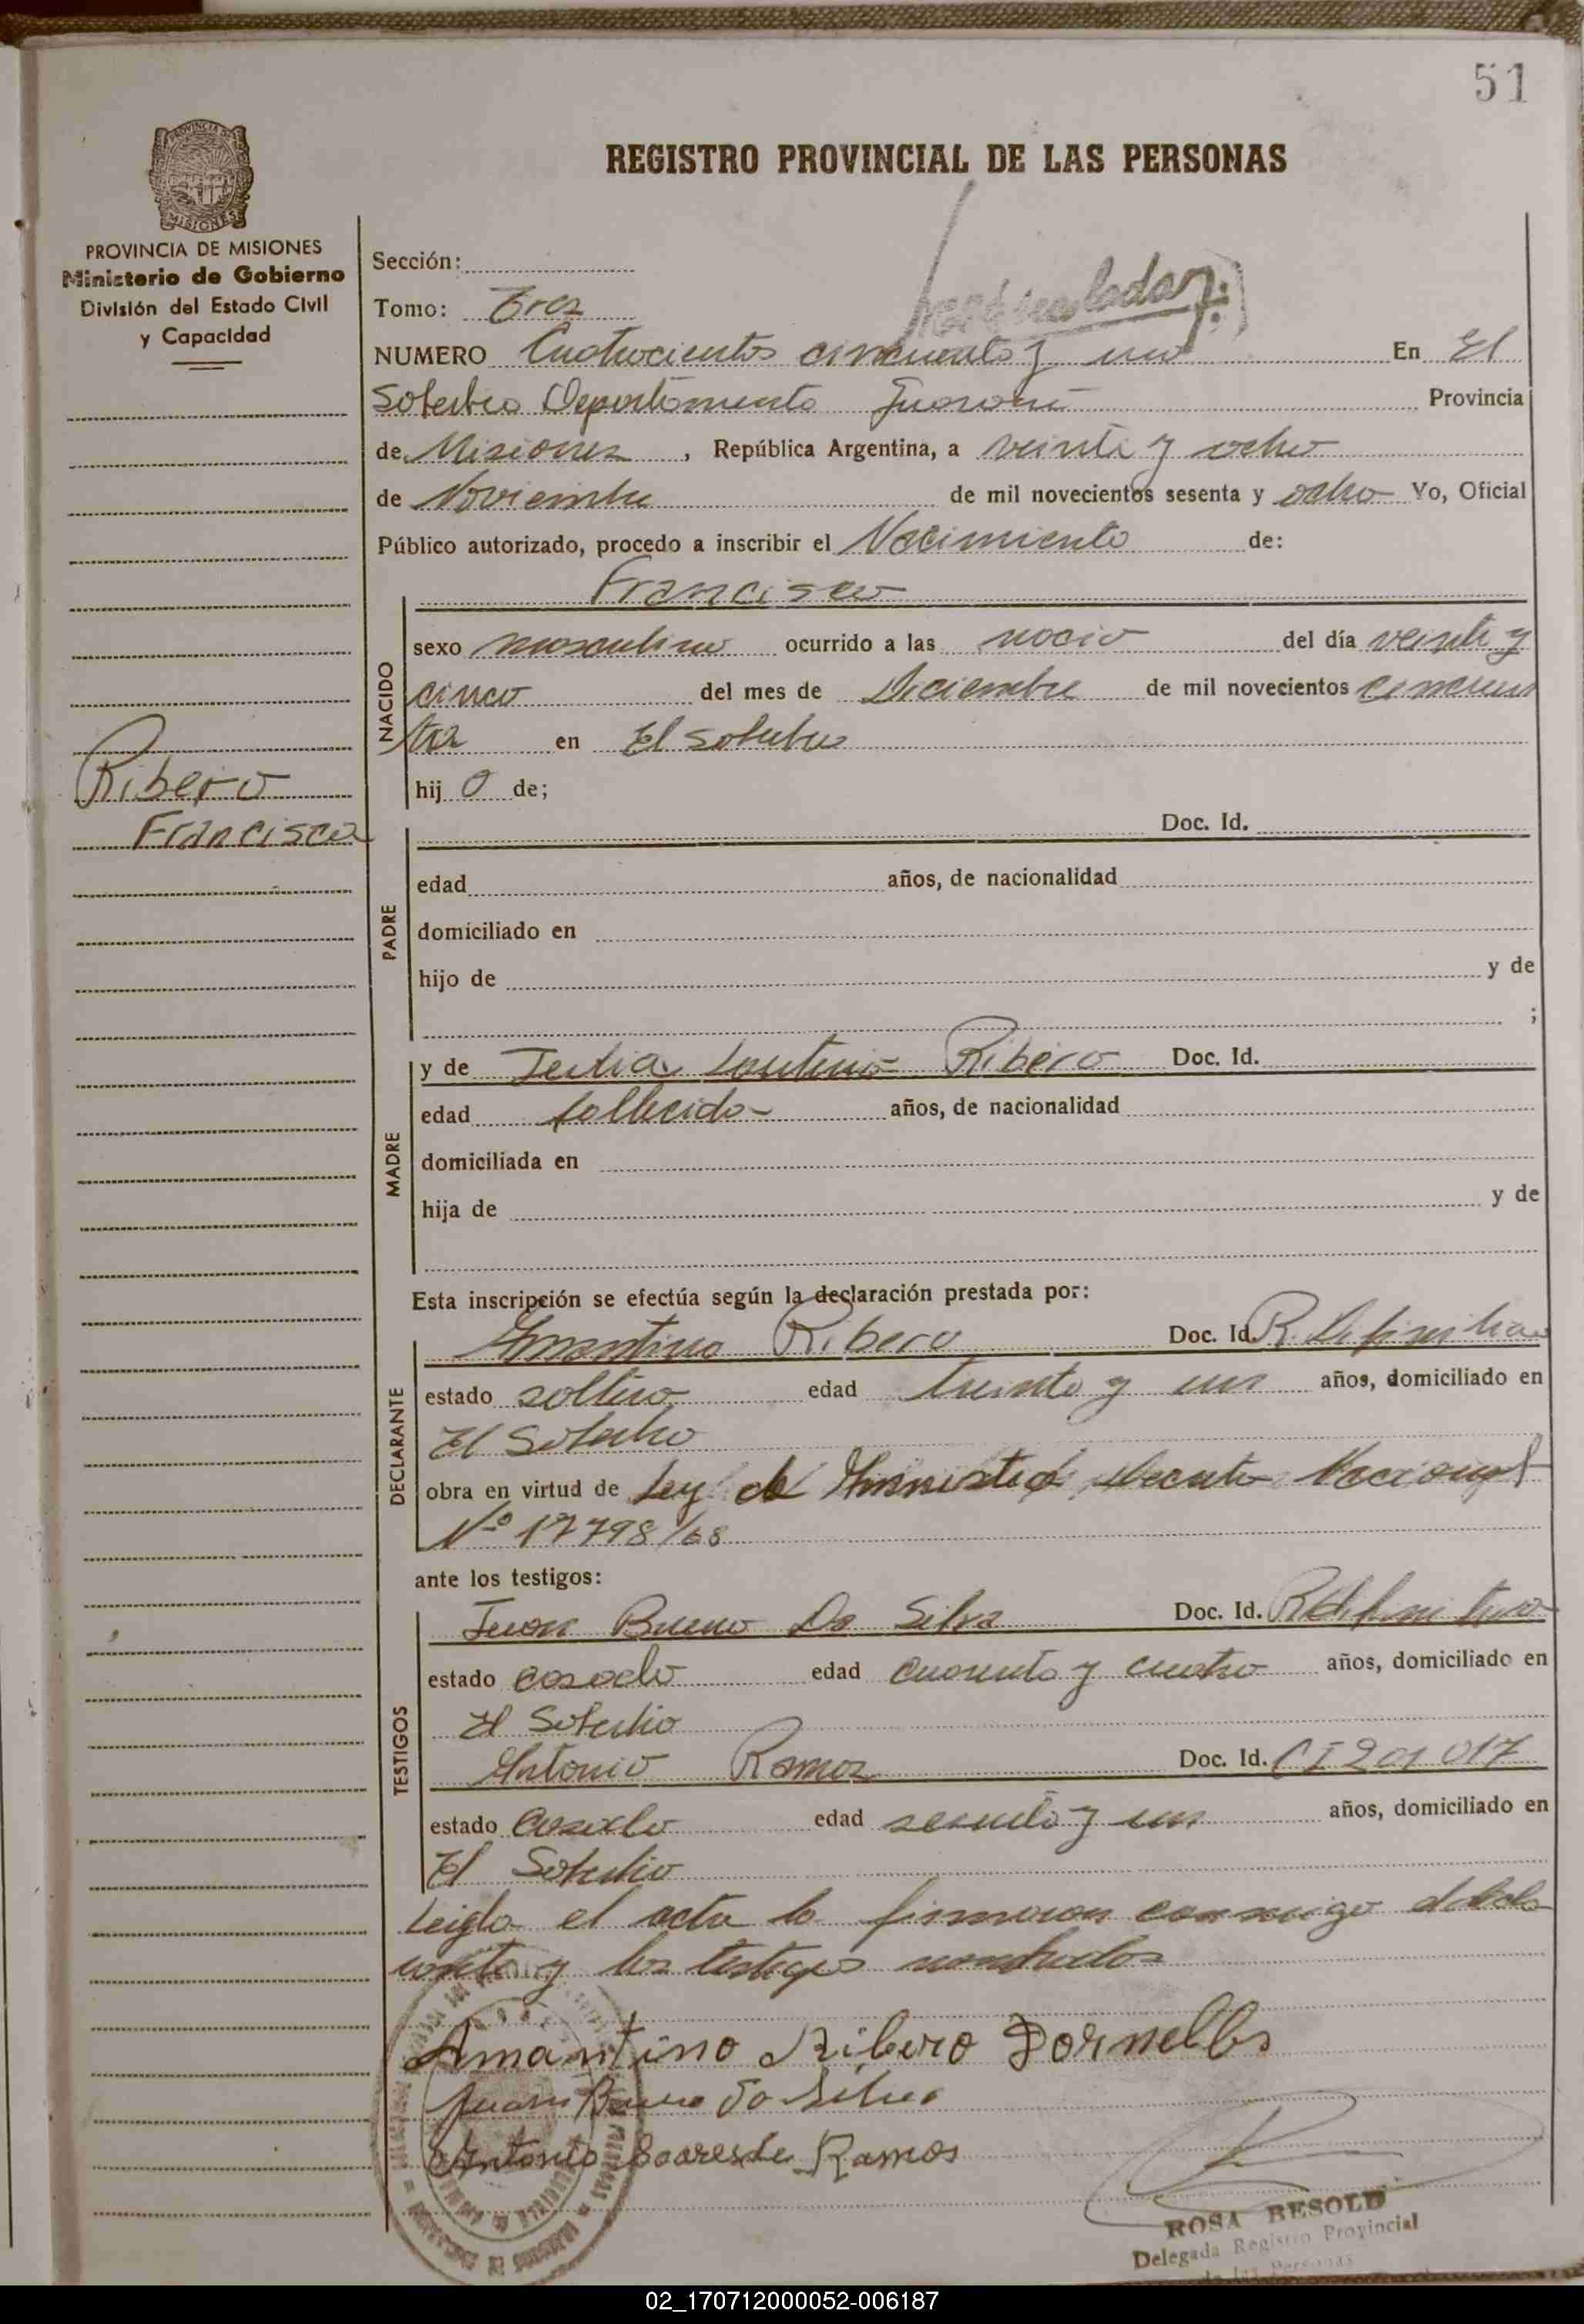 51
REGISTRO PROVINCIAL DE LAS PERSONAS
PROVINCIA DE MISIONES
Ministerio de Gobierno
División del Estado Civil
y Capacidad
Sección:
Tomo: Tres
NUMERO Cuatrocientos cincuenta y uno En El
Soberbio Departamento Guaraní Provincia
de Misiones, República Argentina, a veinte y ocho
de Noviembre de mil novecientos sesenta y ocho Yo, Oficial
Público autorizado, procedo a inscribir el Nacimiento de:
Francisco
NACIDO
sexo masculino ocurrido a las nacio del día veinte y
cinco del mes de Diciembre de mil novecientos cincuen
ta en El Soberbio
hijo de;
Ribero
Francisco
PADRE
Doc. Id.
edad años, de nacionalidad
domiciliado en
hijo de y de
;
MADRE
y de Ribero Doc. Id.
edad años, de nacionalidad
domiciliada en
hija de y de
Esta inscripción se efectúa según la declaración prestada por:
DECLARANTE
Amantino Ribero Doc. Id.
estado soltero edad treinta y un años, domiciliado en
El Soberbio
obra en virtud de Ley de Amnistia Decreto Nacional
Nº 17798/68
ante los testigos:
TESTIGOS
Juan Bueno Da Silva Doc. Id.
estado casado edad cuarenta y cuatro años, domiciliado en
El Soberbio
Antonio Ramos Doc. Id. CI 201 017
estado casado edad sesenta y un años, domiciliado en
El Soberbio
Leida el acta la firmaron conmigo el decla
rante y los testigos nombrados
Amantino Ribero Dornelles
Juan Bueno Da Silva
Antonio Soares de Ramos
ROSA BESOLD
Delegada Registro Provincial
de las Personas
02_170712000052-006187